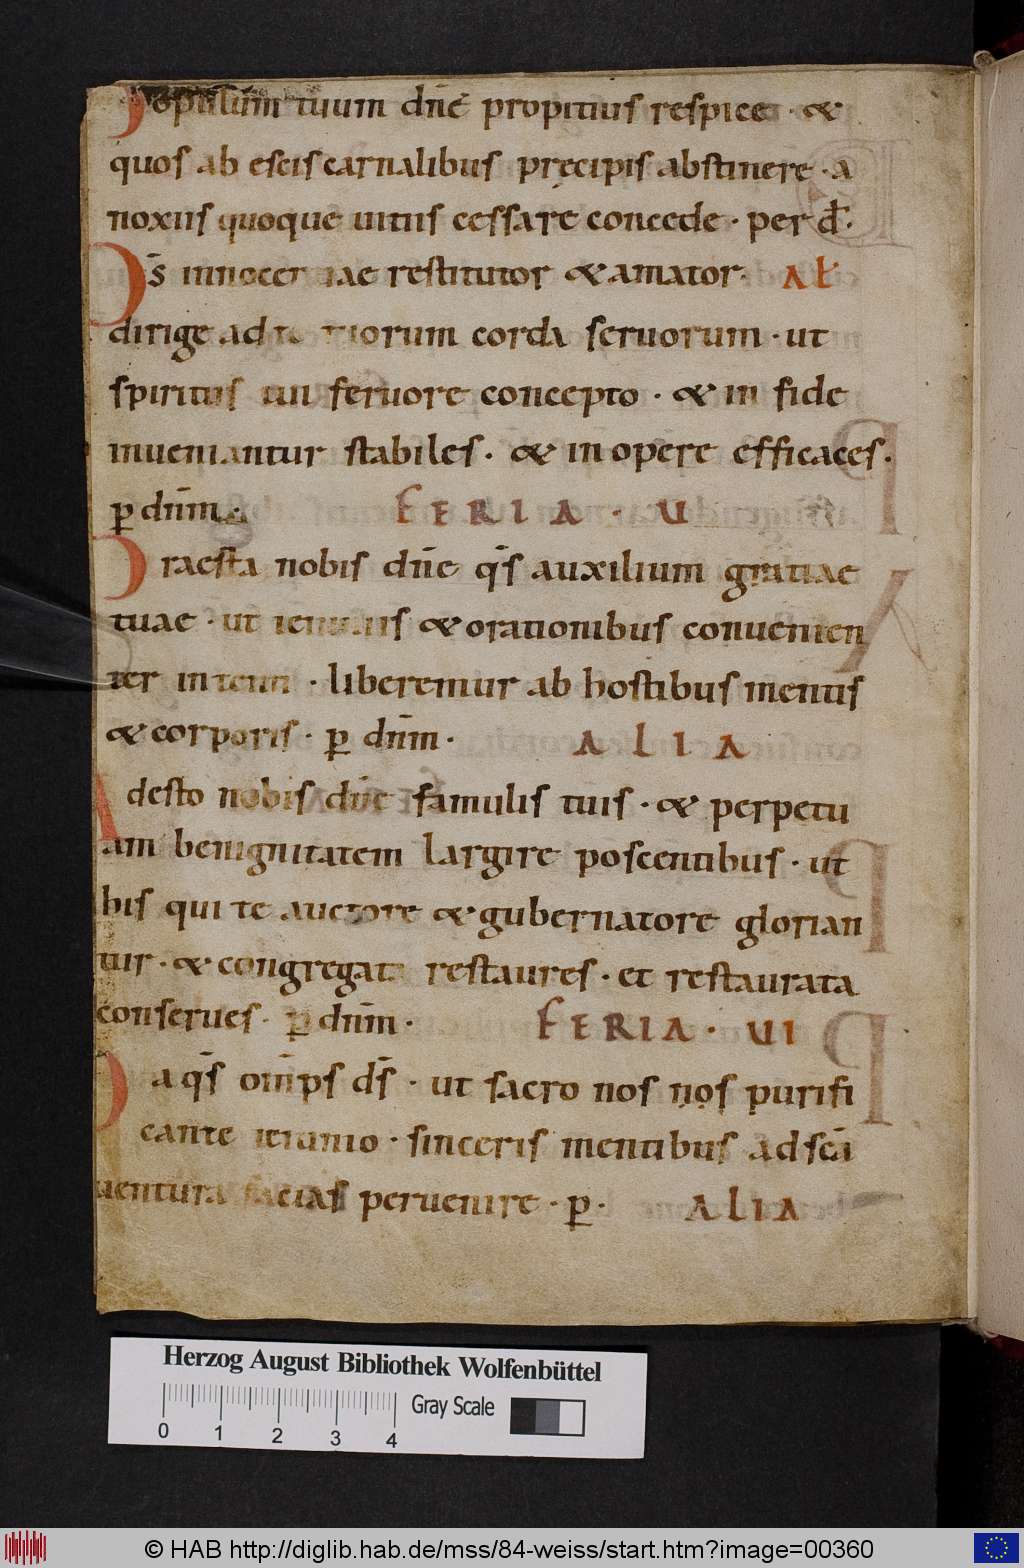 Populum tuum dn̄e propitius respice · &
quos ab escis carnalibus pręcipis abstinere · a
noxiis quoque uitiis cessare concede · per d̄ ·
Ds̄ innocentiae restitutor & amator · AL̄
dirige ad te tuorum corda seruorum · ut
spiritus tui feruore concepto · & in fide
inueniantur stabiles · & in opere efficaces ·
p̲ dn̄m ·
FERIA · U
Praesta nobis dn̄e qs̄ auxilium gratiae
tuae · ut ieiuniis & orationibus conuenien
ter intenti · liberemur ab hostibus mentis
& corporis · p̲ dn̄m · ALIA
Adesto nobis dn̄e famulis tuis · & perpetu
am benignitatem largire poscentibus · ut
his qui te auctore & gubernatore glorian
tur · & congregata restaures · et restaurata
conserues · p̲ dn̄m · FERIA · UI
Da qs̄ om̄ps ds̄ · ut sacro nos nos purifi
cante ieiunio · sinceris mentibus ad sc̄a
uentura facias peruenire · p̲ · ALIA
Herzog August Bibliothek Wolfenbüttel
Gray Scale
0 1 2 3 4
© HAB http://diglib.hab.de/mss/84-weiss/start.htm?image=00360